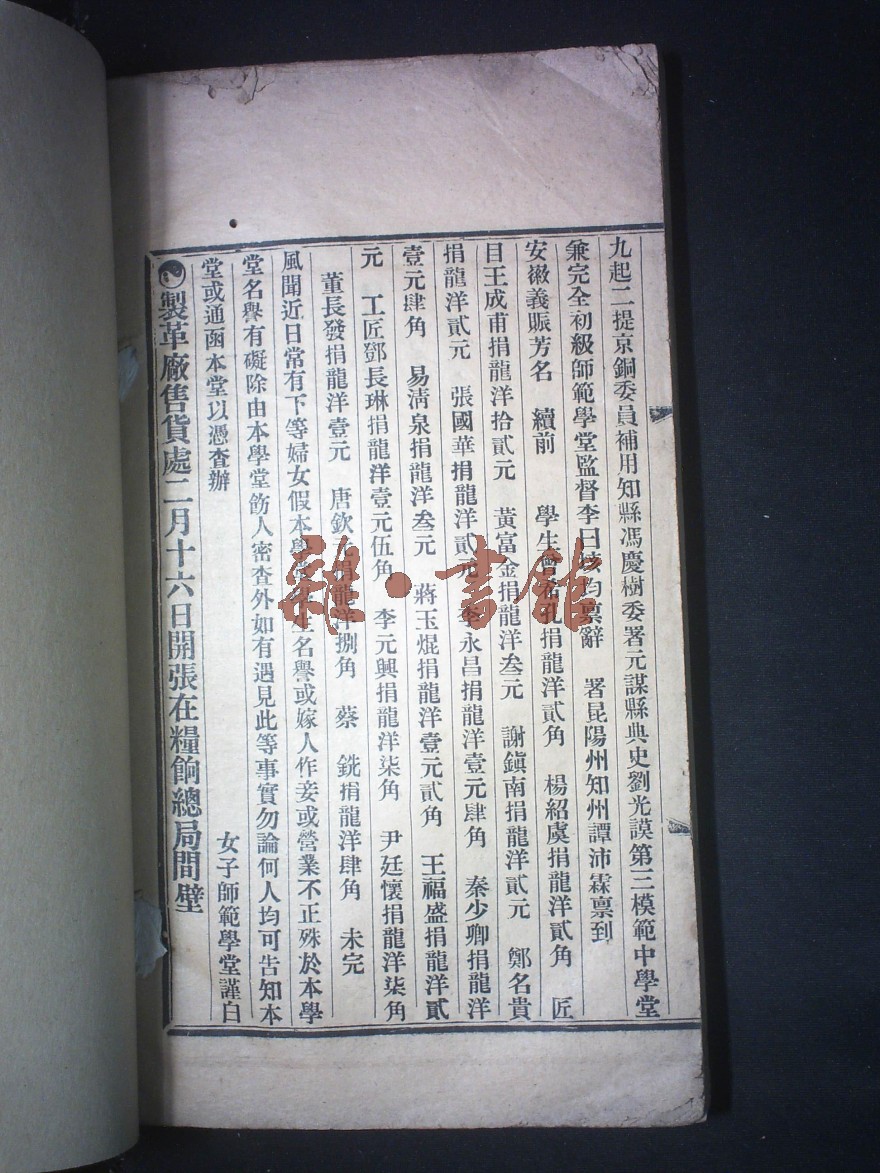 九起二提京銅委員補用知縣馮慶樹委署元謀縣典史劉光謨第三模範中學堂
兼完全初級師範學堂監督李曰垓均稟辭 署昆陽州知州譚沛霖稟到
安徽義賑芳名 續前 學生曾希孔捐龍洋貳角 楊紹虞捐龍洋貳角 匠
目王成甫捐龍洋拾貳元 黃富金捐龍洋叁元 謝鎮南捐龍洋貳元 鄭名貴
捐龍洋貳元 張國華捐龍洋貳元 李永昌捐龍洋壹元肆角 秦少卿捐龍洋
壹元肆角 易清泉捐龍洋叁元 蔣玉焜捐龍洋壹元貳角 王福盛捐龍洋貳
元 工匠鄧長琳捐龍洋壹元伍角 李元興捐龍洋柒角 尹廷懷捐龍洋柒角
董長發捐龍洋壹元 唐欽 捐龍洋捌角 蔡 銑捐龍洋肆角 未完
風聞近日常有下等婦女假本學堂 生名譽或嫁人作妾或營業不正殊於本學
堂名譽有礙除由本學堂飭人密查外如有遇見此等事實勿論何人均可告知本
堂或通函本堂以憑查辦 女子師範學堂謹白
製革廠售貨處二月十六日開張在糧餉總局間壁
雜·書館